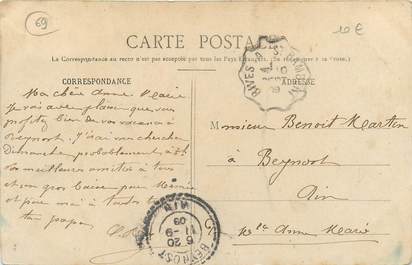 69
10 €
CARTE POSTALE
(La Correspondance au recto n'est pas acceptée par tous les Pays Étrangers.
RIVES A ST RAMBERT
09
CORRESPONDANCE
ADRESSE
Ma chère Anne Marie
Je vois avec plaisir que vous
profitez bien de vos vacances à
Beynost. J'irai vous chercher
Dimanche probablement à
meilleures amitiés à tous
et un gros baiser pour
et pour toi
ton papa
Monsieur Benoit Martin
à Beynost
Ain
Mlle Anne Marie
BEYNOST
AIN
6 20
11 -9
09